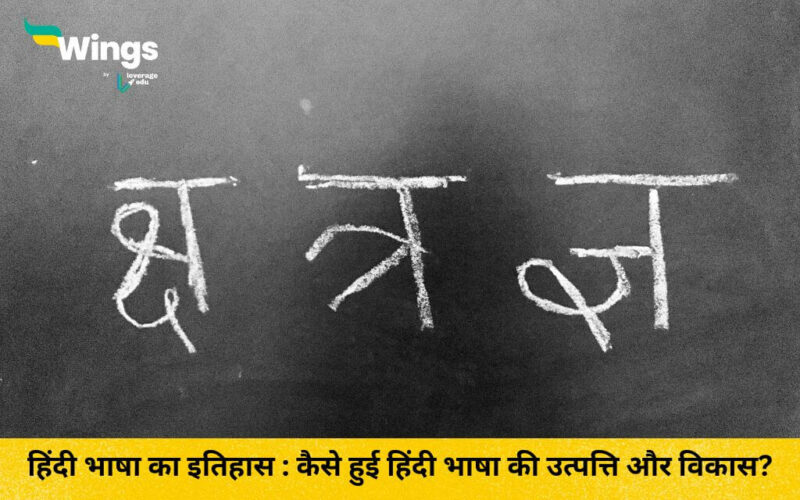 Wings
by leverage edu
क्ष त्र ज्ञ
हिंदी भाषा का इतिहास : कैसे हुई हिंदी भाषा की उत्पत्ति और विकास?